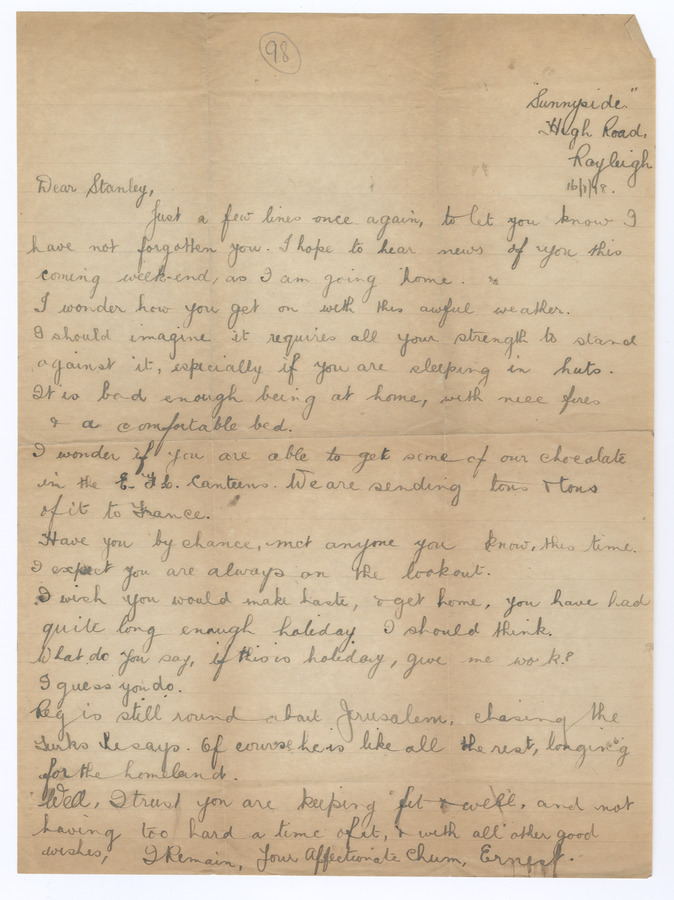 98
"Sunnyside."
High Road,
Rayleigh
16/1/18.
Dear Stanley,
Just a few lines once again, to let you know I
have not forgotten you. I hope to hear news of you this
coming week-end, as I am going home.
I wonder how you get on with this awful weather.
I should imagine it requires all your strength to stand
against it, especially if you are sleeping in huts.
It is bad enough being at home, with nice fires
& a comfortable bed.
I wonder if you are able to get some of our chocolate
in the E. F. C. Canteens. We are sending tons & tons
of it to France.
Have you by chance, met anyone you know, this time.
I expect you are always on the lookout.
I wish you would make haste, & get home, you have had
quite long enough holiday I should think.
What do you say, if this is holiday, give me work?
I guess you do.
Reg is still round about Jerusalem, chasing the
Turks he says. Of course he is like all the rest, longing
for the homeland.
Well, I trust you are keeping fit & well, and not
having too hard a time of it, & with all other good
wishes, I Remain, Your Affectionate Chum, Ernest.